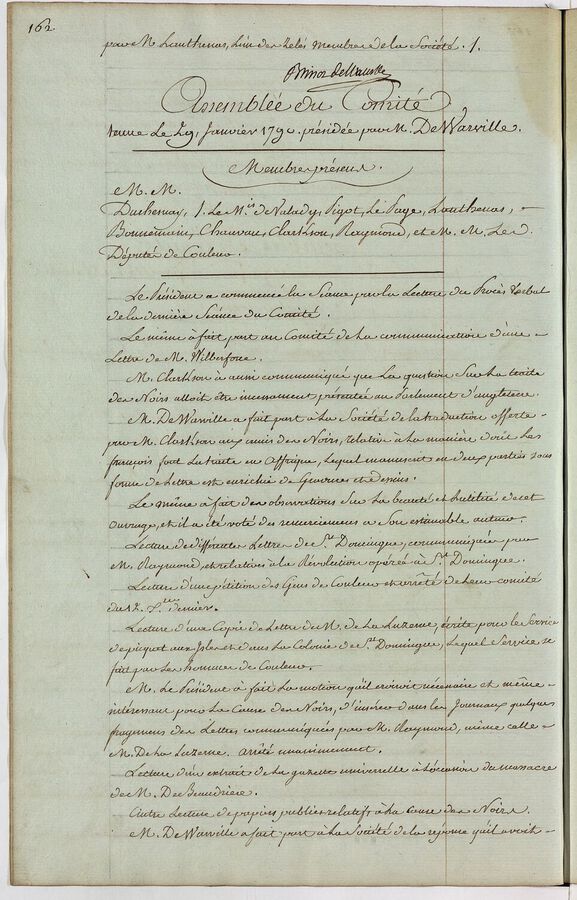 162
par M Lanthenas, l'un des Zelés membres de la Société. /.
Brissot de Warville
Assemblée du Comité
tenue Le 29, Janvier 1790. présidée par M. De Warville.
Membres présens.
M. M.
Duchesnay, /. Le M.is de Valady, Pigot, Le Page, Lanthenas, -
Bonnemain, Chauvau, Clarkson, Raymond, et M. M. Les
Députés de Couleur.
Le Président a commencé la Séance par la Lecture du Procès Verbal
de la derniere Séance du Comité.
Le même à fait part au Comité de la communication d'une -
Lettre de M. Wilberforce.
M. Clarkson à aussi communiqué que La question Sur La traite
des Noirs alloit être incessament présentée au Parlement d'angleterre.
M. De Warville a fait part à La Société de la traduction offerte -
par M. Clarkson aux amis des Noirs, relative à La manière dont Les
françois font La traite en Affrique, Lequel manuscrit en deux parties sous
forme de Lettre est enrichie de Gravures et dessins.
Le même à fait des observations Sur La beauté et L'utilité de cet
ouvrage, et il a été voté des remerciemens a Son estimable auteur.
Lecture de différentes Lettres de S.t Domingue, communiquées par
M. Raymond, et relatives à la Révolution opérée à S.t Domingue.
Lecture d'une pétition des Gens de Couleur et arrêté de Leur comité
du 12. dernier.
Lecture d'une Copie de Lettre de M. de La Luzerne, écrite pour le Service
de piquet aux Isles et dans La Colonie de S.t Domingue, Lequel Service se
fait par Les hommes de Couleur.
M. Le Président à fait La motion qu'il croiroit nécessaire et même -
intéressant pour La Cause des Noirs, d'insérer dans les Journaux quelques
fragmens des Lettres communiquées par M. Raymond, même celle -
M. De La Luzerne. arrêté unanimement.
Lecture d'un extrait de La gazette universelle à L'occasion du massacre
de M. De Beaudriere.
Autre Lecture de papiers publics relatifs à La cause des Noirs.
M. De Warville a fait part à La Société de la réponse qu'il avoit -